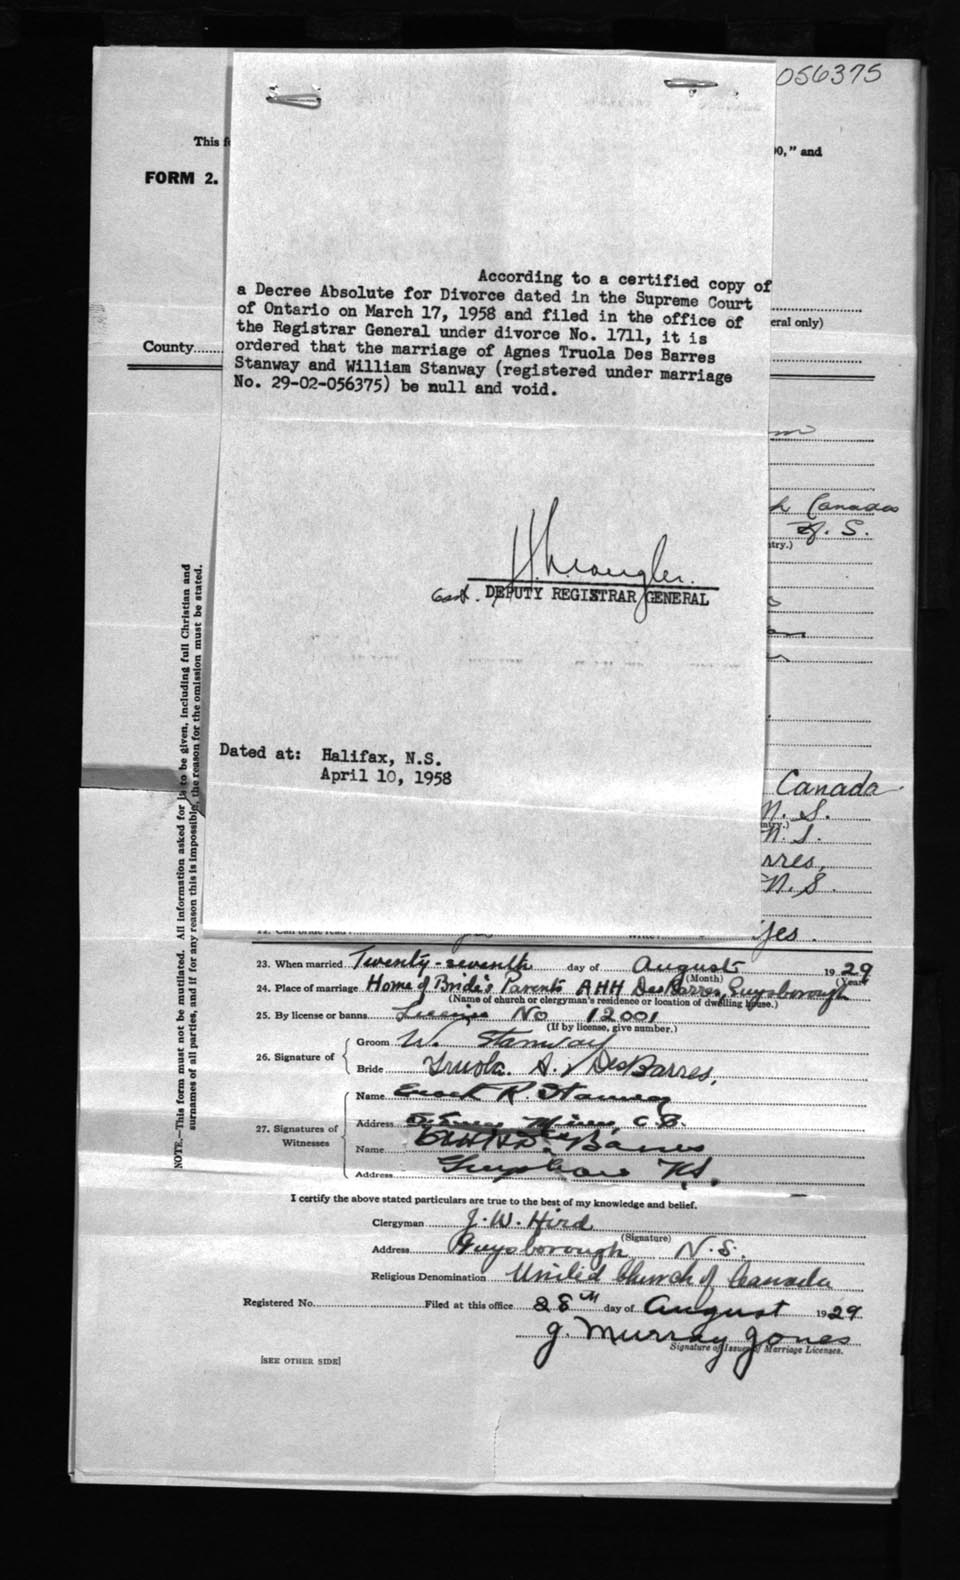 056375
This f
0," and
FORM 2.
According to a certified copy of
a Decree Absolute for Divorce dated in the Supreme Court
of Ontario on March 17, 1958 and filed in the office of
the Registrar General under divorce No. 1711, it is
ordered that the marriage of Agnes Truola Des Barres
Stanway and William Stanway (registered under marriage
No. 29-02-056375) be null and void.
eral only)
County
Canada
N. S.
try.)
DEPUTY REGISTRAR GENERAL
Dated at: Halifax, N.S.
April 10, 1958
Canada
N. S.
ntry.)
N. S.
rres,
N. S.
Yes.
NOTE.—This form must not be mutilated. All information asked for is to be given, including full Christian and
surnames of all parties, and if for any reason this is impossible, the reason for the omission must be stated.
23. When married Twenty-seventh day of August 1929
(Month) (Year)
24. Place of marriage Home of Bride's Parents AHH DesBarres, Guysborough
(Name of church or clergyman's residence or location of dwelling house.)
25. By license or banns License No 12001
(If by license, give number.)
26. Signature of
Groom W. Stanway
Bride Truola. A. DesBarres,
27. Signatures of Witnesses
Name R. Stanway
Address Mines, C.B.
Name Barres
Address N.S.
I certify the above stated particulars are true to the best of my knowledge and belief.
Clergyman J. W. Hird
(Signature)
Address Guysborough N.S.
Religious Denomination United Church of Canada
Registered No. Filed at this office 28th day of August 1929
J. Murray Jones
Signature of Issuer of Marriage Licenses.
[SEE OTHER SIDE]